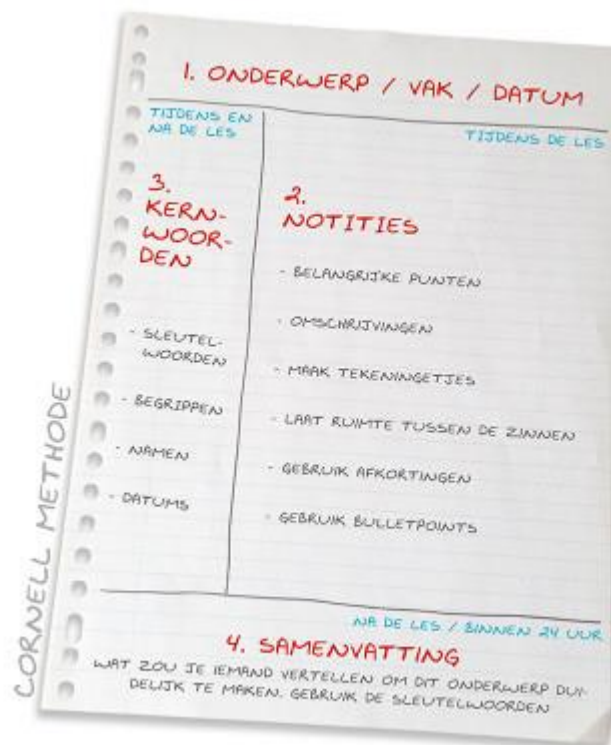 1. ONDERWERP / VAK / DATUM
TIJDENS EN
NA DE LES
3.
KERN-
WOOR-
DEN
- SLEUTEL-
WOORDEN
- BEGRIPPEN
- NAMEN
- DATUMS
TIJDENS DE LES
2.
NOTITIES
- BELANGRIJKE PUNTEN
- OMSCHRIJVINGEN
- MAAK TEKENINGETJES
- LAAT RUIMTE TUSSEN DE ZINNEN
- GEBRUIK AFKORTINGEN
- GEBRUIK BULLETPOINTS
NA DE LES / BINNEN 24 UUR
4. SAMENVATTING
WAT ZOU JE IEMAND VERTELLEN OM DIT ONDERWERP DUI-
DELIJK TE MAKEN. GEBRUIK DE SLEUTELWOORDEN
CORNELL METHODE